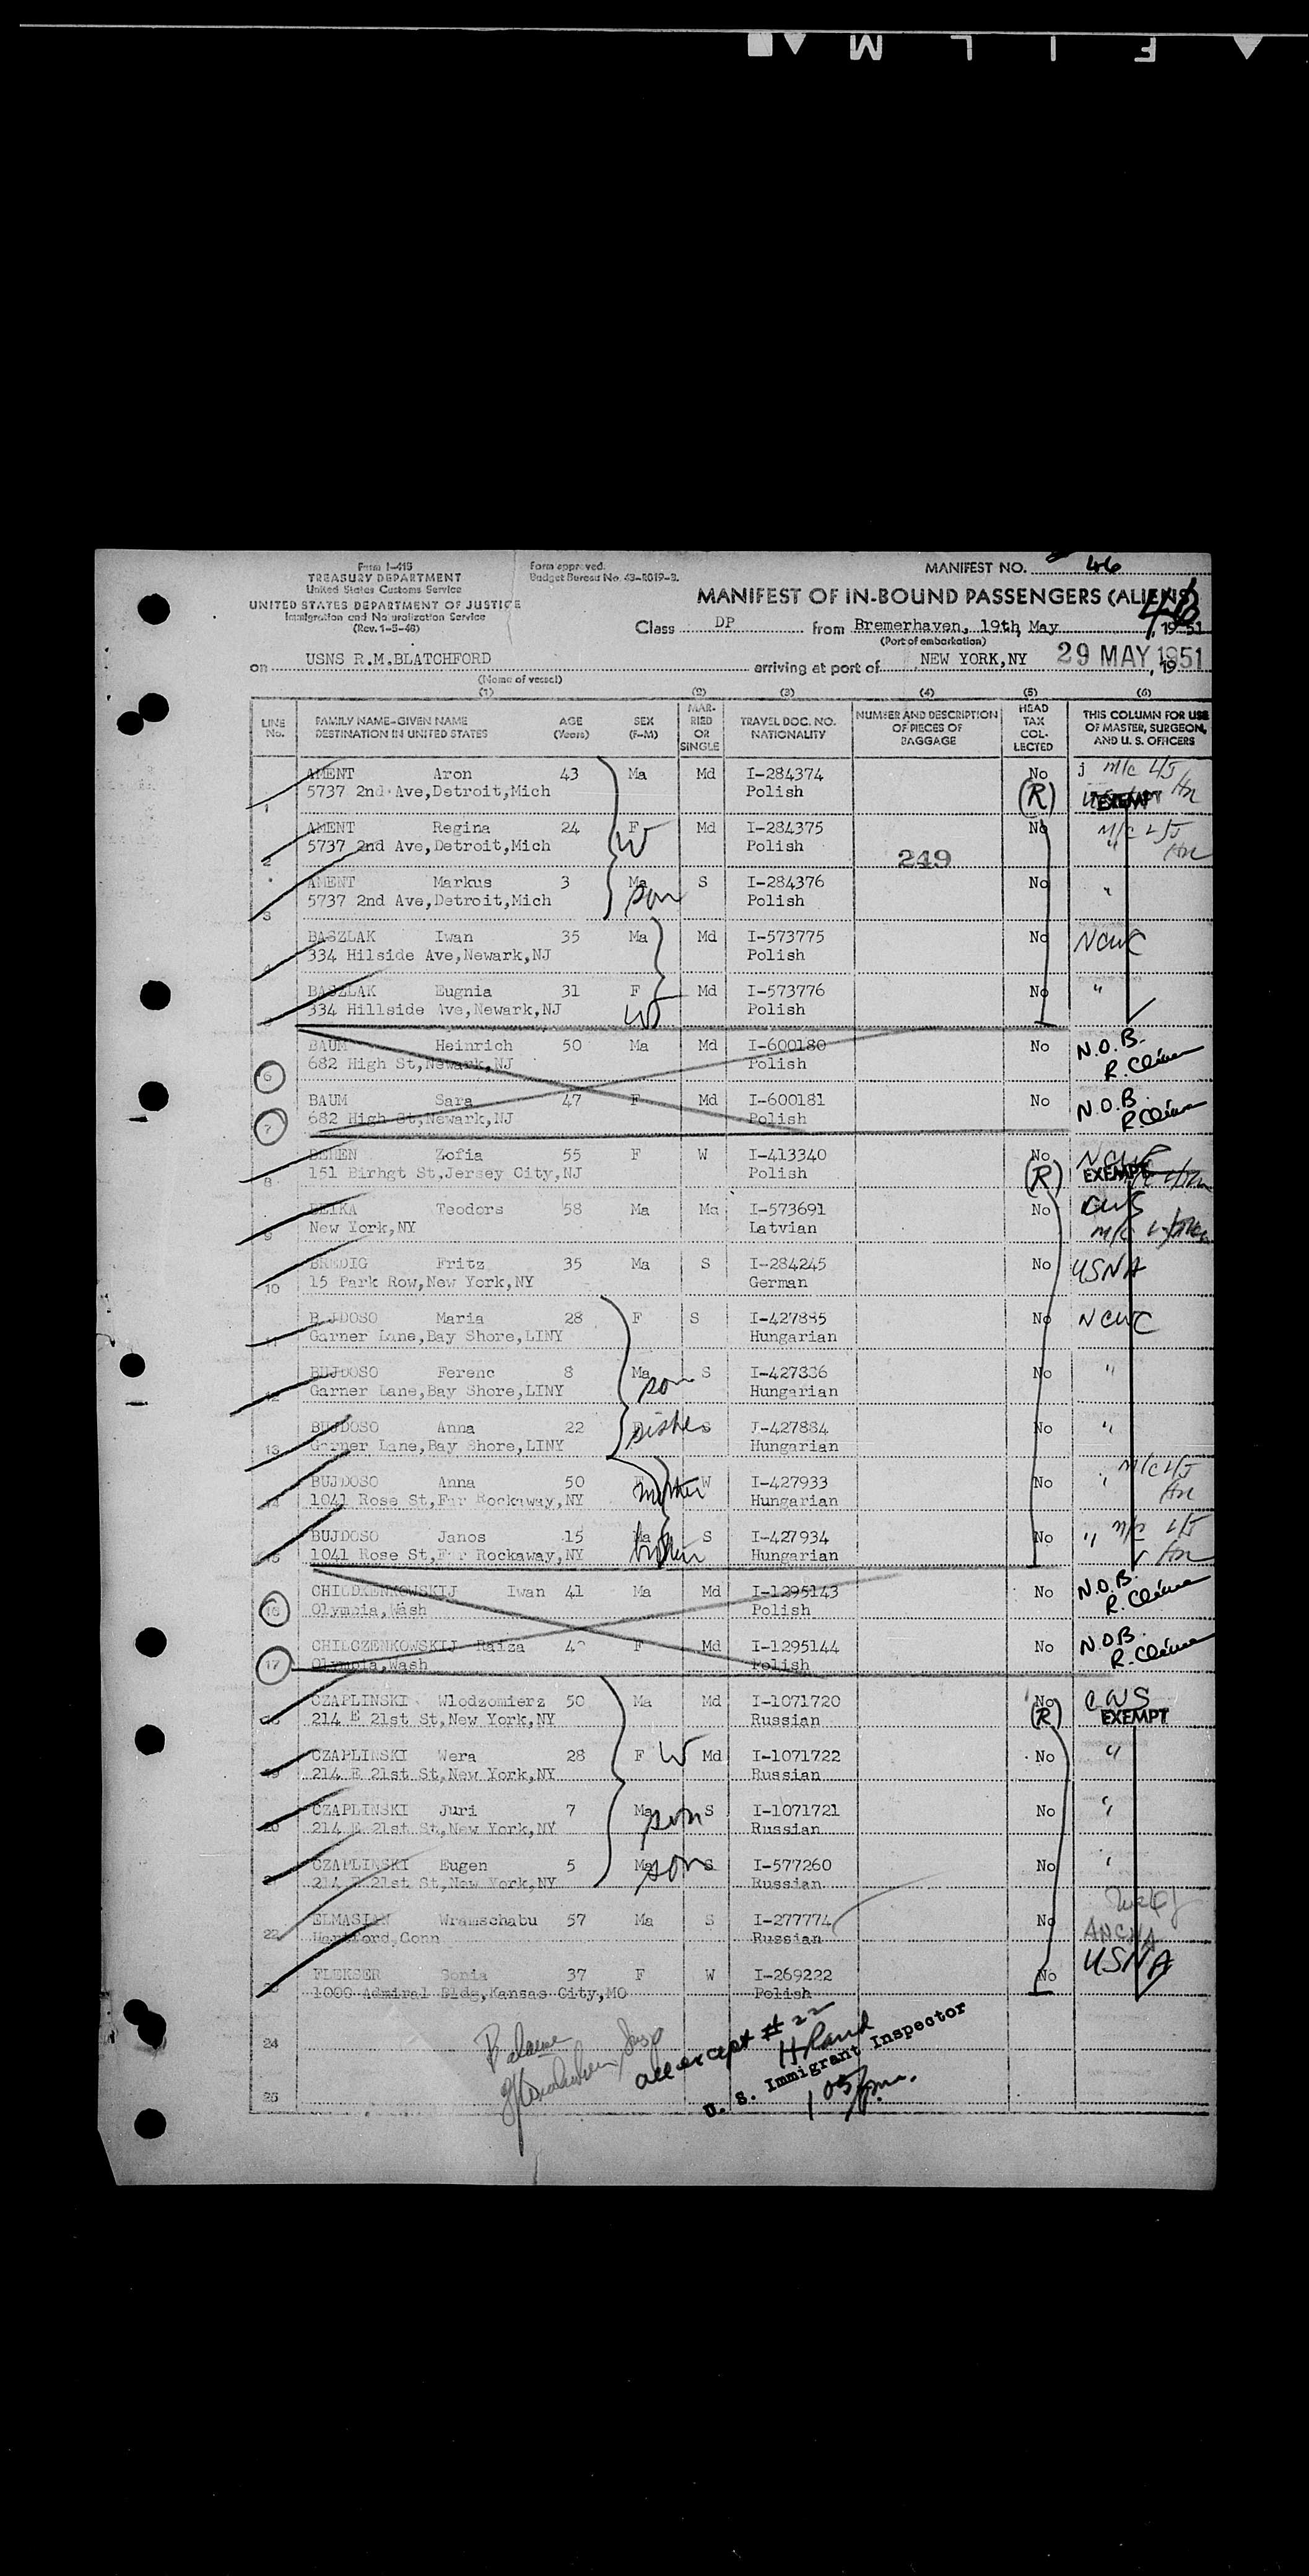 FILM
Form I-415
TREASURY DEPARTMENT
United States Customs Service
UNITED STATES DEPARTMENT OF JUSTICE
Immigration and Naturalization Service
(Rev. 1-5-48)
Form approved.
Budget Bureau No. 43-R019-3.
MANIFEST NO. 46
MANIFEST OF IN-BOUND PASSENGERS (ALIENS)
46
Class DP from Bremerhaven, 19th May, 1951
(Port of embarkation)
on USNS R.M.BLATCHFORD arriving at port of NEW YORK,NY 29 MAY 1951, 19
(Name of vessel)
(1) (2) (3) (4) (5) (6)
LINE No. FAMILY NAME-GIVEN NAME DESTINATION IN UNITED STATES AGE (Years) SEX (F-M) MARRIED OR SINGLE TRAVEL DOC. NO. NATIONALITY NUMBER AND DESCRIPTION OF PIECES OF BAGGAGE HEAD TAX COLLECTED THIS COLUMN FOR USE OF MASTER, SURGEON, AND U. S. OFFICERS
AMENT Aron 43 Ma Md I-284374 No j m/c L/J
1 5737 2nd Ave,Detroit,Mich Polish (R) EXEMPT
AMENT Regina 24 F Md I-284375 No m/c L/J
2 5737 2nd Ave,Detroit,Mich W Polish 249 "
AMENT Markus 3 Ma S I-284376 No
3 5737 2nd Ave,Detroit,Mich son Polish "
BASZLAK Iwan 35 Ma Md I-573775 No NCWC
4 334 Hilside Ave,Newark,NJ Polish
BASZLAK Eugnia 31 F Md I-573776 No "
5 334 Hillside Ave,Newark,NJ W Polish
BAUM Heinrich 50 Ma Md I-600180 No N.O.B.
6 682 High St,Newark,NJ Polish
BAUM Sara 47 F Md I-600181 No N.O.B.
7 682 High St,Newark,NJ Polish
Zofia 55 F W I-413340 No NCWC
8 151 Birhgt St,Jersey City,NJ Polish (R) EXEMPT
Teodors 58 Ma Ma I-573691 No CWS
9 New York,NY Latvian m/c
BREDIG Fritz 35 Ma S I-284245 No USNA
10 15 Park Row,New York,NY German
BUJDOSO Maria 28 F S I-427885 No NCWC
11 Garner Lane,Bay Shore,LINY Hungarian
BUJDOSO Ferenc 8 Ma S I-427886 No "
12 Garner Lane,Bay Shore,LINY son Hungarian
BUJDOSO Anna 22 F S I-427884 No "
13 Garner Lane,Bay Shore,LINY sister Hungarian
BUJDOSO Anna 50 F W I-427933 No " m/c L/J
14 1041 Rose St,Far Rockaway,NY mother Hungarian
BUJDOSO Janos 15 Ma S I-427934 No " m/c L/J
15 1041 Rose St,Far Rockaway,NY brother Hungarian
CHILDZENKOWSKIJ Iwan 41 Ma Md I-1295143 No N.O.B.
16 Olympia,Wash Polish
CHILCZENKOWSKIJ Raiza F Md I-1295144 No N.O.B.
17 Olympia,Wash Polish
CZAPLINSKI Wlodzomierz 50 Ma Md I-1071720 No CWS
18 214 E 21st St,New York,NY Russian (R) EXEMPT
CZAPLINSKI Wera 28 F W Md I-1071722 No "
19 214 E 21st St,New York,NY Russian
CZAPLINSKI Juri 7 Ma S I-1071721 No "
20 214 E 21st St,New York,NY son Russian
CZAPLINSKI Eugen 5 Ma S I-577260 No "
21 214 E 21st St,New York,NY son Russian
ELMASIAN Wramschabu 57 Ma S I-277774 No
22 Hartford,Conn Russian ANCHA
FLEKSER Sonia 37 F W I-269222 No USNA
23 1000 Admiral Bldg,Kansas City,MO Polish
24
all except # 22
U. S. Immigrant Inspector
25